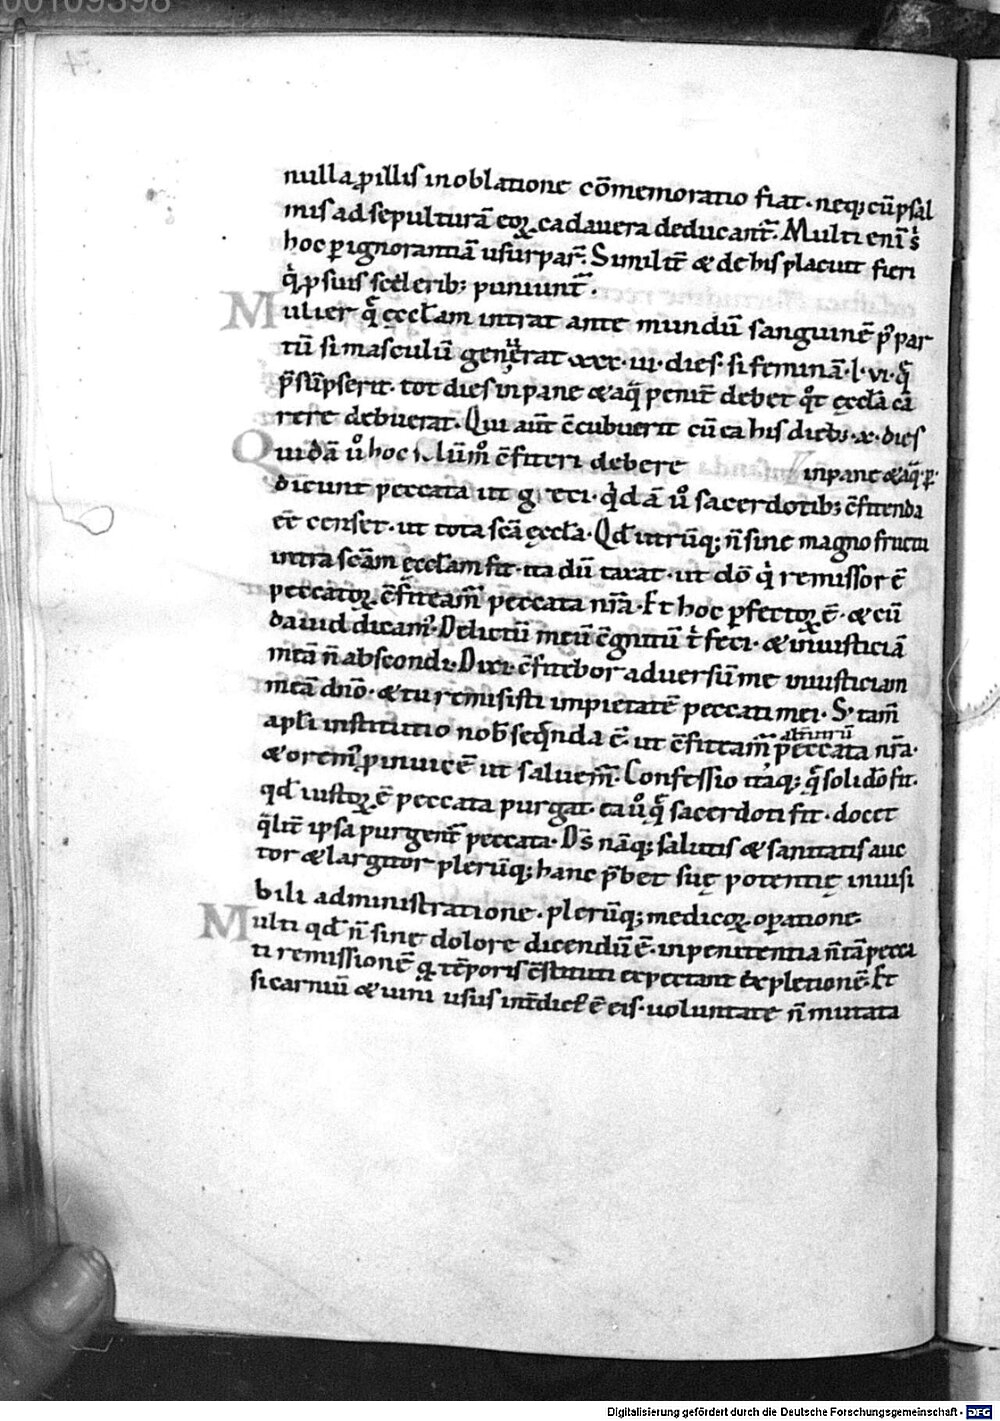 00109398
nulla ꝓ illis in oblatione cōmemoratio fiat · neq; cū psal
mis ad sepulturā eoꝝ cadauera deducant᷑. Multi enī s̓
hoc ꝑ ignorantiā usurpar̄. Similit᷑ & de his placuit fieri
q̓ ꝓ suis sceleribꝫ puniunt᷑.
Mulier q̄ ęcclam intrat ante mundū sanguinē p̄ par
tū si masculū generat xxx · iii · dies · si feminā · l · vi · q̄
p̄sūpserit · tot dies in pane & aq̄ penit᷑ debet qͦt ęccła ca
rere debuerat · Qui aut̄ c̄cubuerit cū ea his diebꝫ · x · dies
in pane & aq̄ ꝑ·
Quidā ůͦ hoc c̄fiteri debere
dicunt peccata ut greci · q̓dā ůͦ sacerdotibꝫ c̄fitenda
eē censet · ut tota scā ęccła · Qd̄ utrūq; n̄ sine magno fructu
intra scām ęccłam fit · ita dū taxat · ut dō q̓ remissor ē
peccatoꝝ c̄fiteam᷑ peccata nr̄a · Et hoc ꝑfectoꝝ ē · & cū
dauid dicam᷑ · Delictū meū c̄gnitū t̓ feci · & iniusticiā
meā n̄ abscondi · Dixi c̄fitebor aduersū me iniusticiam
meā dn̄o · & tu remisisti impietatē peccati mei · S; tam̄
apłi institutio nob̄ seq̄nda ē · ut c̄fiteam᷑ peccata nr̄a ·
alt̄utrū
& orem᷑ ꝓ inuicē ut saluem᷑ · Confessio itaq; q̄ soli dō fit ·
qd̄ iustoꝝ ē peccata purgat · ea ůͦ q̄ sacerdoti fit · docet
q̄lit᷑ ipsa purgent᷑ peccata · Ds̄ nāq; salutis & sanitatis auc
tor & largitor plerūq; hanc p̄bet suę potentię inuisi
bili administratione · plerūq; medicoꝝ oꝑatione ·
Multi qd̄ n̄ sine dolore dicendū ē · in penitentia n̄ tā pecca
ti remissionē q̄ tēporis c̄stituti expectant expletionē · Et
si carniū & uini usus int̄dict᷑ ē eis · uoluntate n̄ mutata
Digitalisierung gefördert durch die Deutsche Forschungsgemeinschaft - DFG